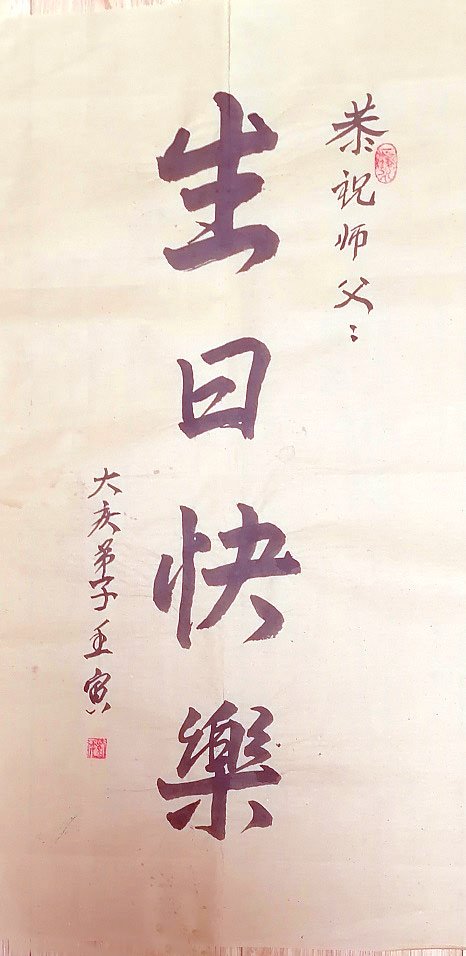 恭祝师父：
生日快樂
大庆弟子壬寅